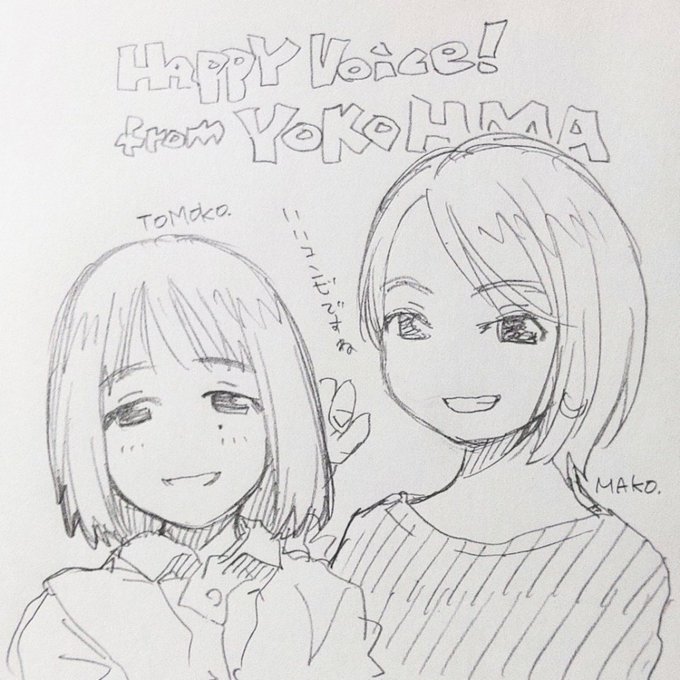 HAPPY Voice!
from YOKOHMA
TOMOKO.
いいコンビですね
MAKO.